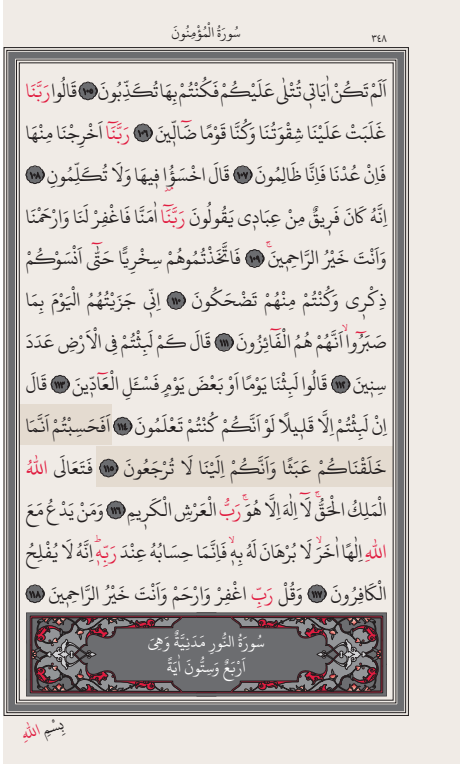 سُورَةُ الْمُؤْمِنُونَ
٣٤٨
اَلَمْ تَكُنْ اٰيَاتٖي تُتْلٰى عَلَيْكُمْ فَكُنْتُمْ بِهَا تُكَذِّبُونَ ﴿١٠٥﴾ قَالُوا رَبَّنَا
غَلَبَتْ عَلَيْنَا شِقْوَتُنَا وَكُنَّا قَوْمًا ضَٓالّٖينَ ﴿١٠٦﴾ رَبَّنَٓا اَخْرِجْنَا مِنْهَا
فَاِنْ عُدْنَا فَاِنَّا ظَالِمُونَ ﴿١٠٧﴾ قَالَ اخْسَؤُ۫ا فٖيهَا وَلَا تُكَلِّمُونِ ﴿١٠٨﴾
اِنَّهُ كَانَ فَرٖيقٌ مِنْ عِبَادٖي يَقُولُونَ رَبَّنَٓا اٰمَنَّا فَاغْفِرْ لَنَا وَارْحَمْنَا
وَاَنْتَ خَيْرُ الرَّاحِمٖينَۚ ﴿١٠٩﴾ فَاتَّخَذْتُمُوهُمْ سِخْرِيًّا حَتّٰٓى اَنْسَوْكُمْ
ذِكْرٖي وَكُنْتُمْ مِنْهُمْ تَضْحَكُونَ ﴿١١٠﴾ اِنّٖي جَزَيْتُهُمُ الْيَوْمَ بِمَا
صَبَرُٓواۙ اَنَّهُمْ هُمُ الْفَٓائِزُونَ ﴿١١١﴾ قَالَ كَمْ لَبِثْتُمْ فِي الْاَرْضِ عَدَدَ
سِنٖينَ ﴿١١٢﴾ قَالُوا لَبِثْنَا يَوْمًا اَوْ بَعْضَ يَوْمٍ فَسْـَٔلِ الْعَٓادّٖينَ ﴿١١٣﴾ قَالَ
اِنْ لَبِثْتُمْ اِلَّا قَلٖيلًا لَوْ اَنَّكُمْ كُنْتُمْ تَعْلَمُونَ ﴿١١٤﴾ اَفَحَسِبْتُمْ اَنَّمَا
خَلَقْنَاكُمْ عَبَثًا وَاَنَّكُمْ اِلَيْنَا لَا تُرْجَعُونَ ﴿١١٥﴾ فَتَعَالَى اللّٰهُ
الْمَلِكُ الْحَقُّۚ لَٓا اِلٰهَ اِلَّا هُوَۚ رَبُّ الْعَرْشِ الْكَرٖيمِ ﴿١١٦﴾ وَمَنْ يَدْعُ مَعَ
اللّٰهِ اِلٰهًا اٰخَرَۙ لَا بُرْهَانَ لَهُ بِهٖۙ فَاِنَّمَا حِسَابُهُ عِنْدَ رَبِّهٖؕ اِنَّهُ لَا يُفْلِحُ
الْكَافِرُونَ ﴿١١٧﴾ وَقُلْ رَبِّ اغْفِرْ وَارْحَمْ وَاَنْتَ خَيْرُ الرَّاحِمٖينَ ﴿١١٨﴾
سُورَةُ النُّورِ مَدَنِيَّةٌ وَهِيَ
اَرْبَعٌ وَسِتُّونَ اٰيَةً
بِسْمِ اللّٰهِ